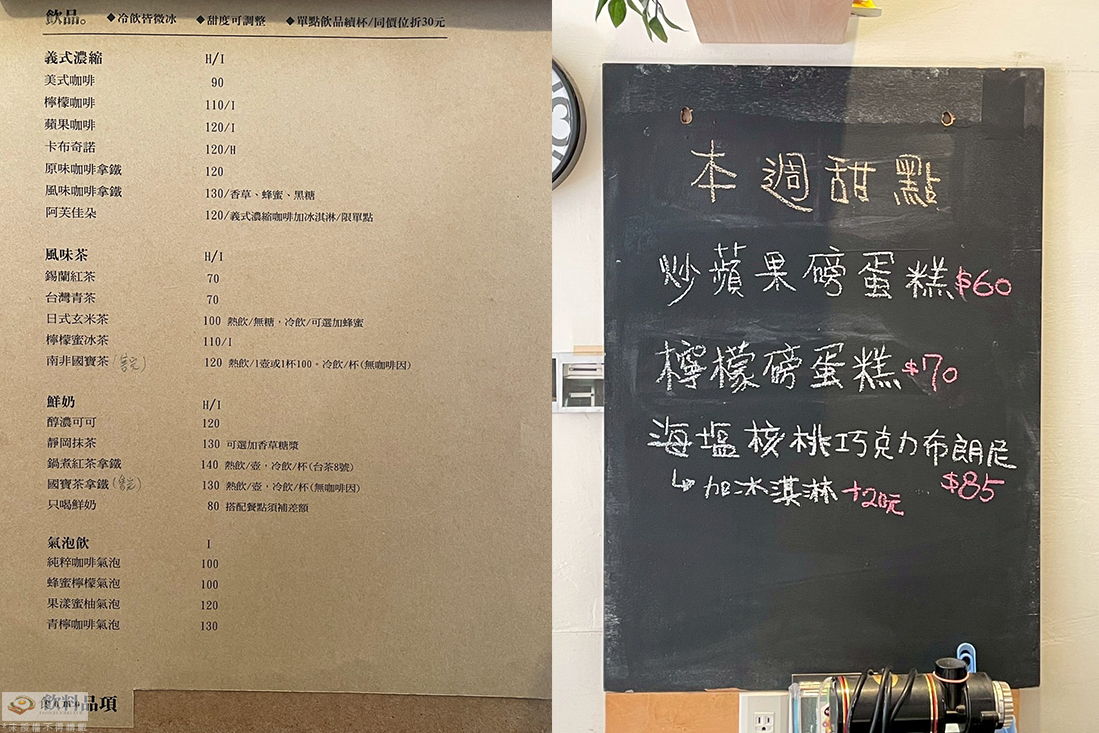 飲品。 ◆冷飲皆微冰 ◆甜度可調整 ◆單點飲品續杯/同價位折30元
義式濃縮 H/I
美式咖啡 90
檸檬咖啡 110/I
蘋果咖啡 120/I
卡布奇諾 120/H
原味咖啡拿鐵 120
風味咖啡拿鐵 130/香草、蜂蜜、黑糖
阿芙佳朵 120/義式濃縮咖啡加冰淇淋/限單點
風味茶 H/I
錫蘭紅茶 70
台灣青茶 70
日式玄米茶 100 熱飲/無糖，冷飲/可選加蜂蜜
檸檬蜜冰茶 110/I
南非國寶茶(售完) 120 熱飲/1壺或1杯100。冷飲/杯(無咖啡因)
鮮奶 H/I
醇濃可可 120
靜岡抹茶 130 可選加香草糖漿
鍋煮紅茶拿鐵 140 熱飲/壺，冷飲/杯(台茶8號)
國寶茶拿鐵(售完) 130 熱飲/壺，冷飲/杯(無咖啡因)
只喝鮮奶 80 搭配餐點須補差額
氣泡飲 I
純粹咖啡氣泡 100
蜂蜜檸檬氣泡 100
果漾蜜柚氣泡 120
青檸咖啡氣泡 130
飲料品項
本週甜點
炒蘋果磅蛋糕$60
檸檬磅蛋糕$70
海塩核桃巧克力布朗尼
$85
↳加冰淇淋+20元